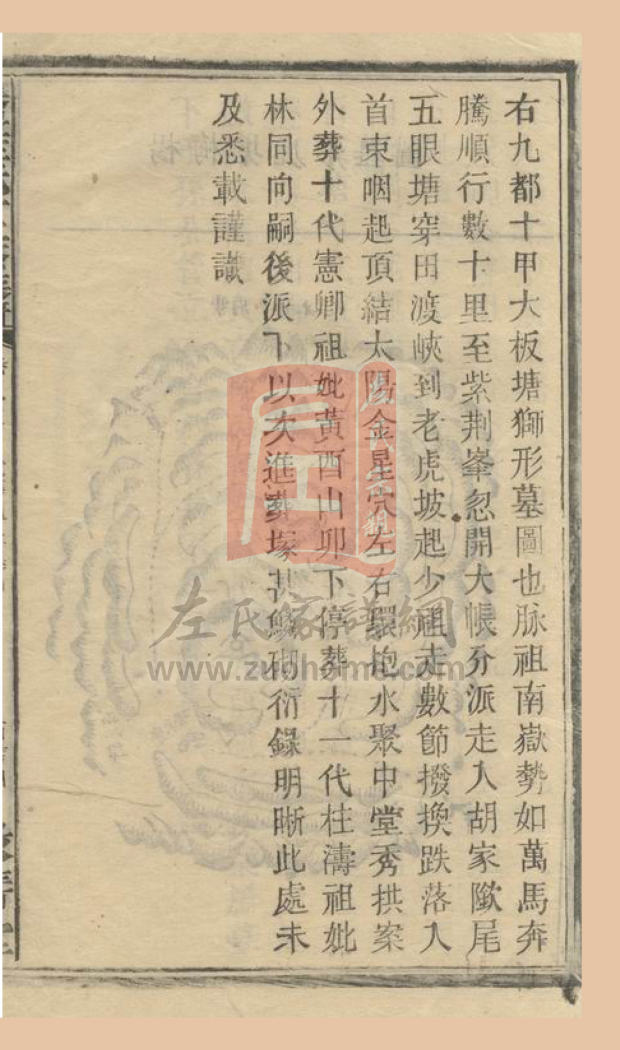 右九都十甲大板塘獅形墓圖也脉祖南嶽勢如萬馬奔
騰順行數十里至紫荆峯忽開大帳分派走入胡家隞尾
五眼塘穿田渡峽到老虎坡起少祖走數節撥換跌落入
首束咽起頂結太陽金星穴左右環抱水聚中堂秀拱案
外葬十代憲卿祖妣黃酉山卯下停葬十一代柱濤祖妣
林同向嗣後派下以次進葬塚甚鱗砌衍錄明晰此處未
及悉載謹識
左氏家譜網
www.zuohome.com